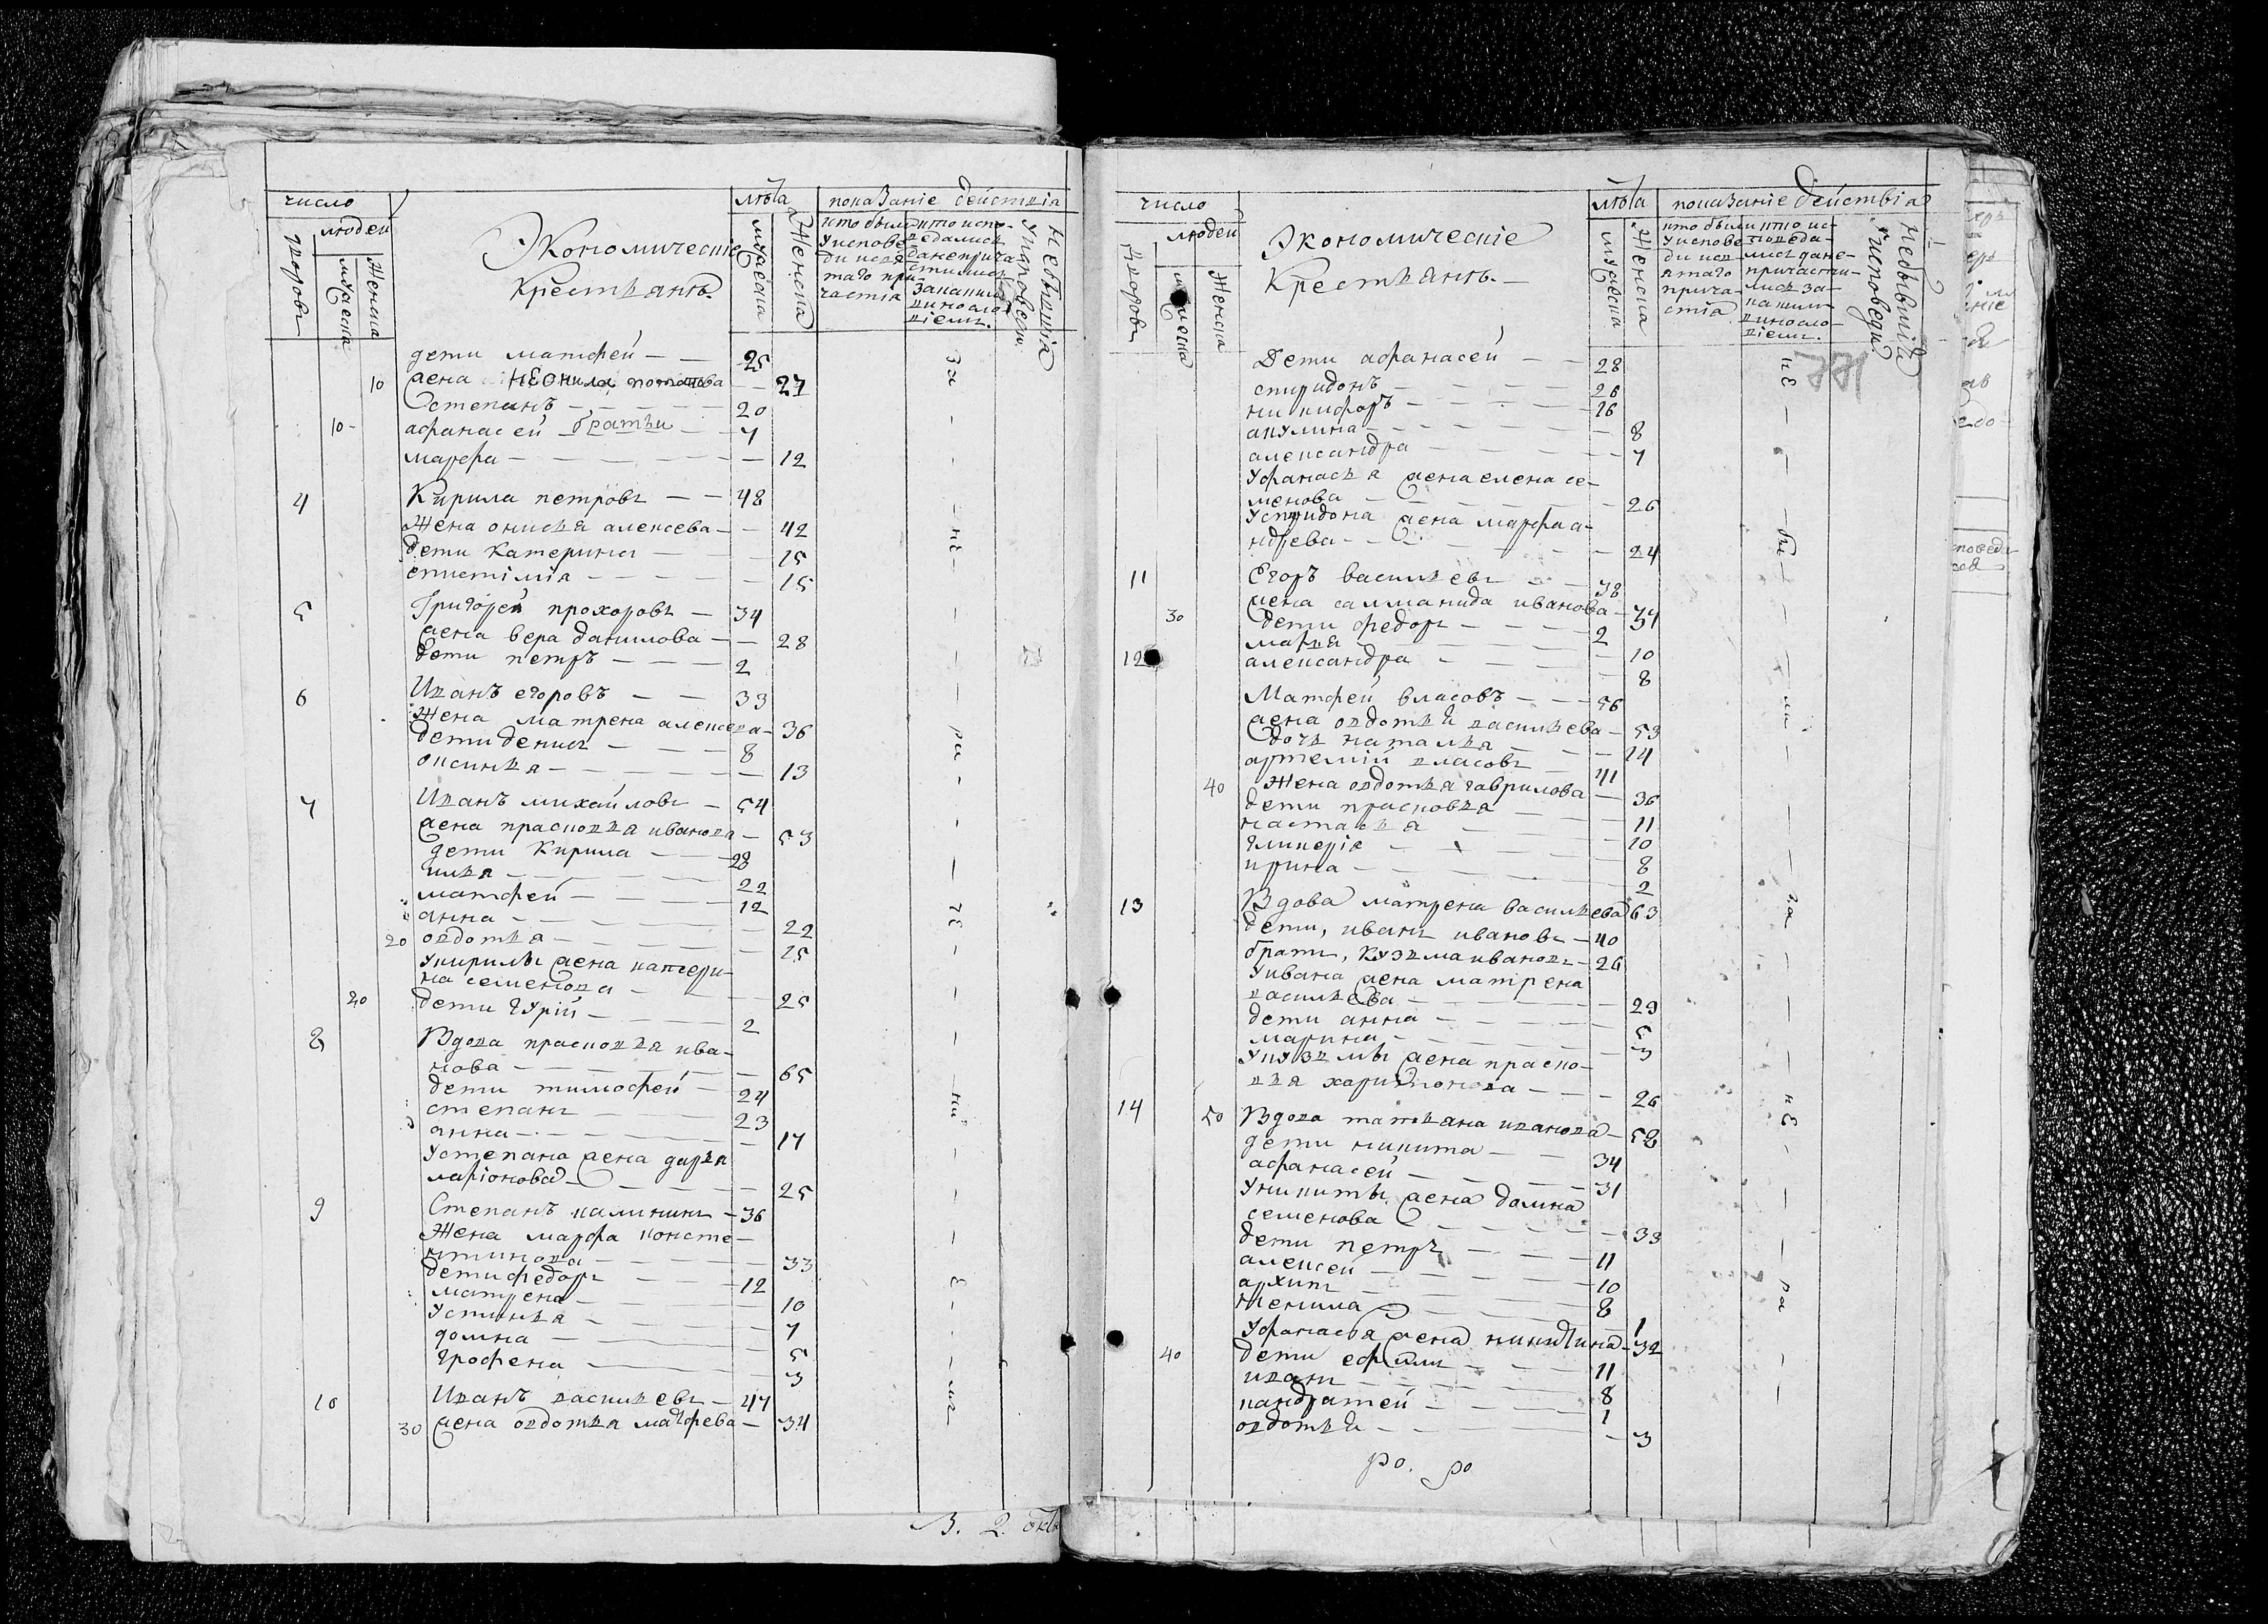 число
людей
дворовъ
мужеска
Женска
Экономическіе
Крестьянъ.
лѣта
мужеска
Женска
показаніе действія
кто были
у испове
ди и свя
таго при
частія
кто испо
ведался
да не прича
стился
за каким
виносло
віемъ.
Небывшія
у исповеди
дети матфей — — 25
10 жена неонила потапова — 27
степанъ — 20
10 афанасей братьи — 7
марфа — 12
4 Кирила петровъ — — 48
Жена онисья алексева — 42
дети катерины — 15
епистиміа — 15
5 Григорей прохоровъ — 34
жена вера данилова — 28
дети петръ — 2
6 Иванъ егоровъ — — 33
Жена матрена алексева — 36
дети денисъ — 8
оксинья — 13
7 Иванъ михайловъ — 54
жена прасковья иванова — 53
дети Кирила — 28
илья — 22
матфей — 12
анна — 22
20 овдотья — 15
у кирилы жена катери-
на семенова — 25
20 дети гурій — 2
8 Вдова прасковья ива-
нова — 65
дети тимофей — 24
степанъ — 23
анна — 17
у степана жена дарья
ларіонова — 25
9 Степанъ калининъ — 36
Жена марфа консте-
нтинова — 33
дети федоръ — 12
матрена — 10
устинья — 7
домна — 5
грофена — 3
10 Иванъ васильевъ — 47
30 жена овдотья матфева — 34
За
не
ра
че
ни
е
мъ
число
людей
дворовъ
Женска
Экономическіе
Крестьянъ. —
лѣта
мужеска
Женска
показаніе действіа
кто были
у испове
ди и св
ятаго
прича-
стіа
кто ис-
поведа-
лись да не-
причасти-
лись за-
каким-
виносло-
віемъ.
Небывшіа
у исповеди
781
Дети афанасей — 28
спиридонъ — 26
никифоръ — 16
акулина — 8
александра — 7
У афанасья жена елена се-
менова — 26
У спиридона жена марфа а-
ндрева — 24
11 Егоръ васильевъ — 38
жена салманида иванова — 34
30 дети федоръ — 2
марья — 10
12 александра — 8
Матфей власовъ — 56
жена овдотья васильева — 53
дочь наталья — 14
артемій власовъ — 41
40 Жена овдотья гаврилова — 36
дети прасковья — 11
настасья — 10
гликеріа — 8
ирина — 2
13 Вдова матрена васильева 63
дети, иванъ ивановъ — 40
братъ, кузьма ивановъ — 26
У ивана жена матрена
васильева — 29
дети анна — 5
марина — 3
У кузьмы жена праско-
вья харитонова — 26
14 50 Вдова татьяна иванова — 58
дети никита — 34
афанасей — 31
У никиты жена домна
семенова — 33
дети петръ — 11
алексей — 10
архипъ — 8
ненила — 1
У афанасья жена никитина — 32
40 дети ефимъ — 11
иванъ — 8
кандратей — 1
овдотья — 3
не
ра
не
ра